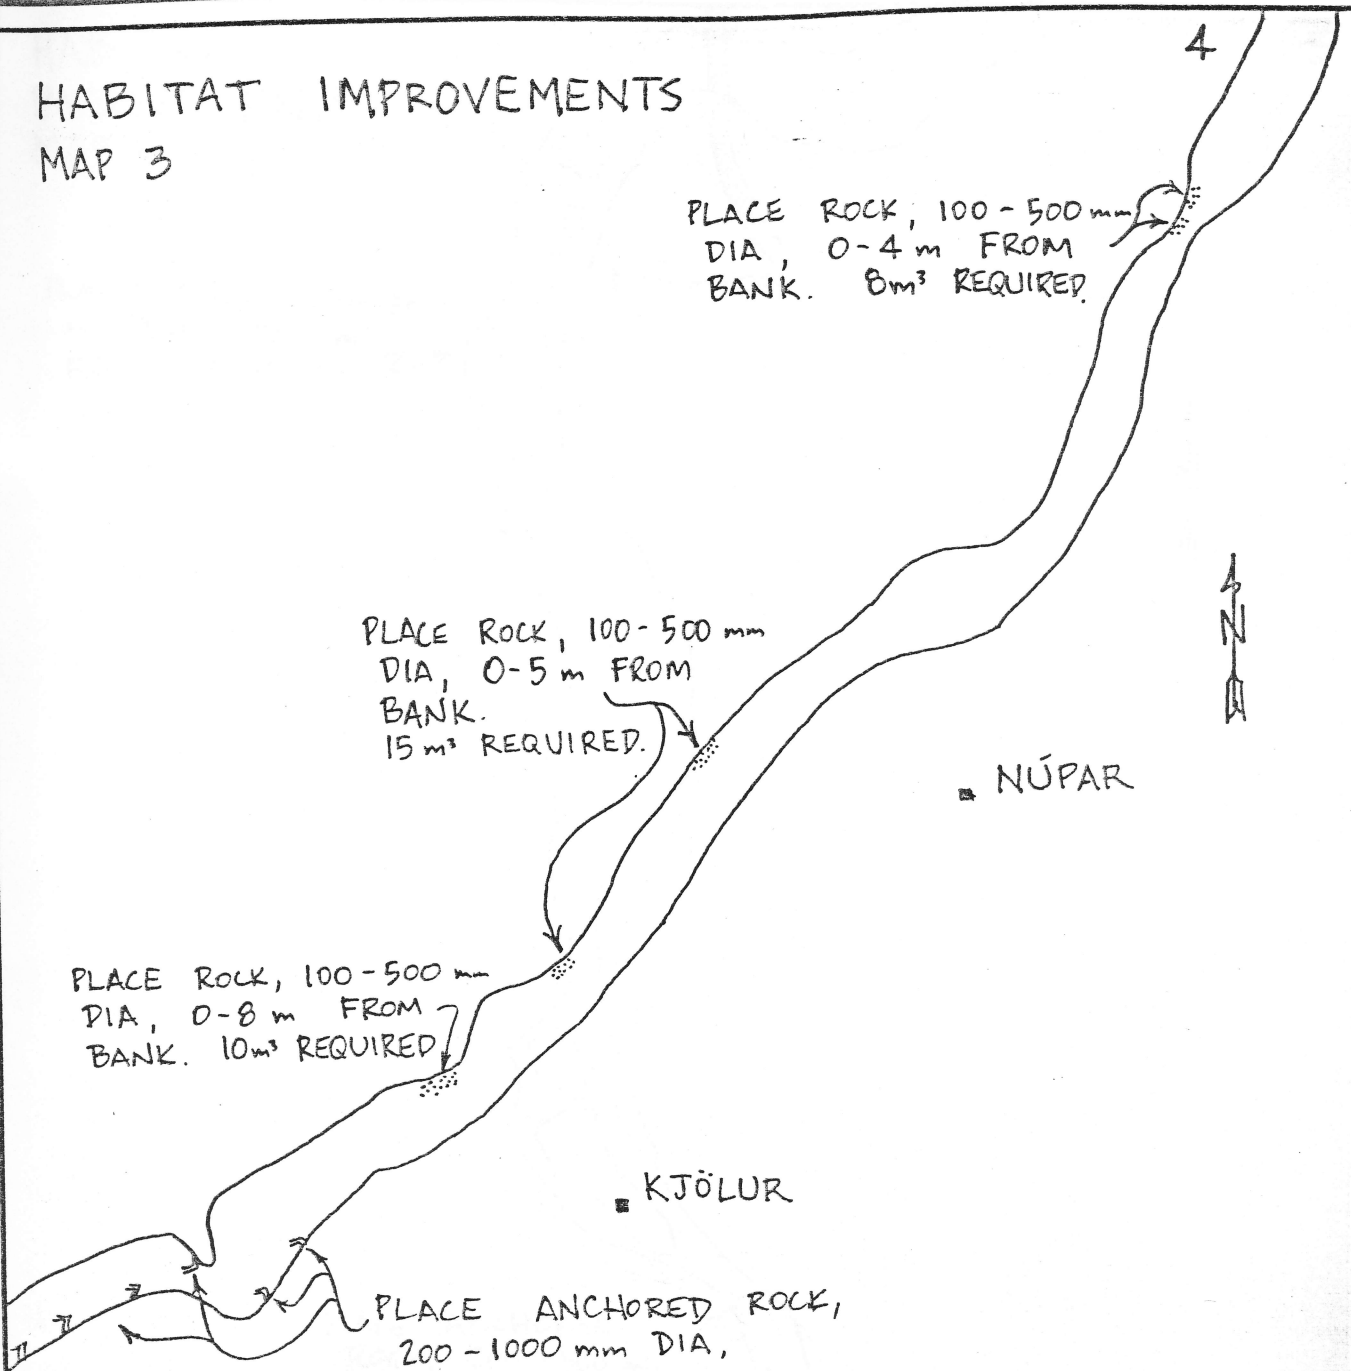 4
HABITAT IMPROVEMENTS
MAP 3
PLACE ROCK, 100-500 mm
DIA, 0-4 m FROM
BANK. 8m³ REQUIRED.
N
PLACE ROCK, 100-500 mm
DIA, 0-5 m FROM
BANK.
15 m³ REQUIRED.
NÚPAR
PLACE ROCK, 100-500 mm
DIA, 0-8 m FROM
BANK. 10m³ REQUIRED
KJÖLUR
PLACE ANCHORED ROCK,
200-1000 mm DIA,